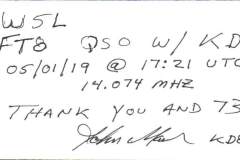 W5L
FT8 QSO W/ KD
05/01/19 @ 17:21 UTC
14.074 MHZ
THANK YOU AND 73
KD